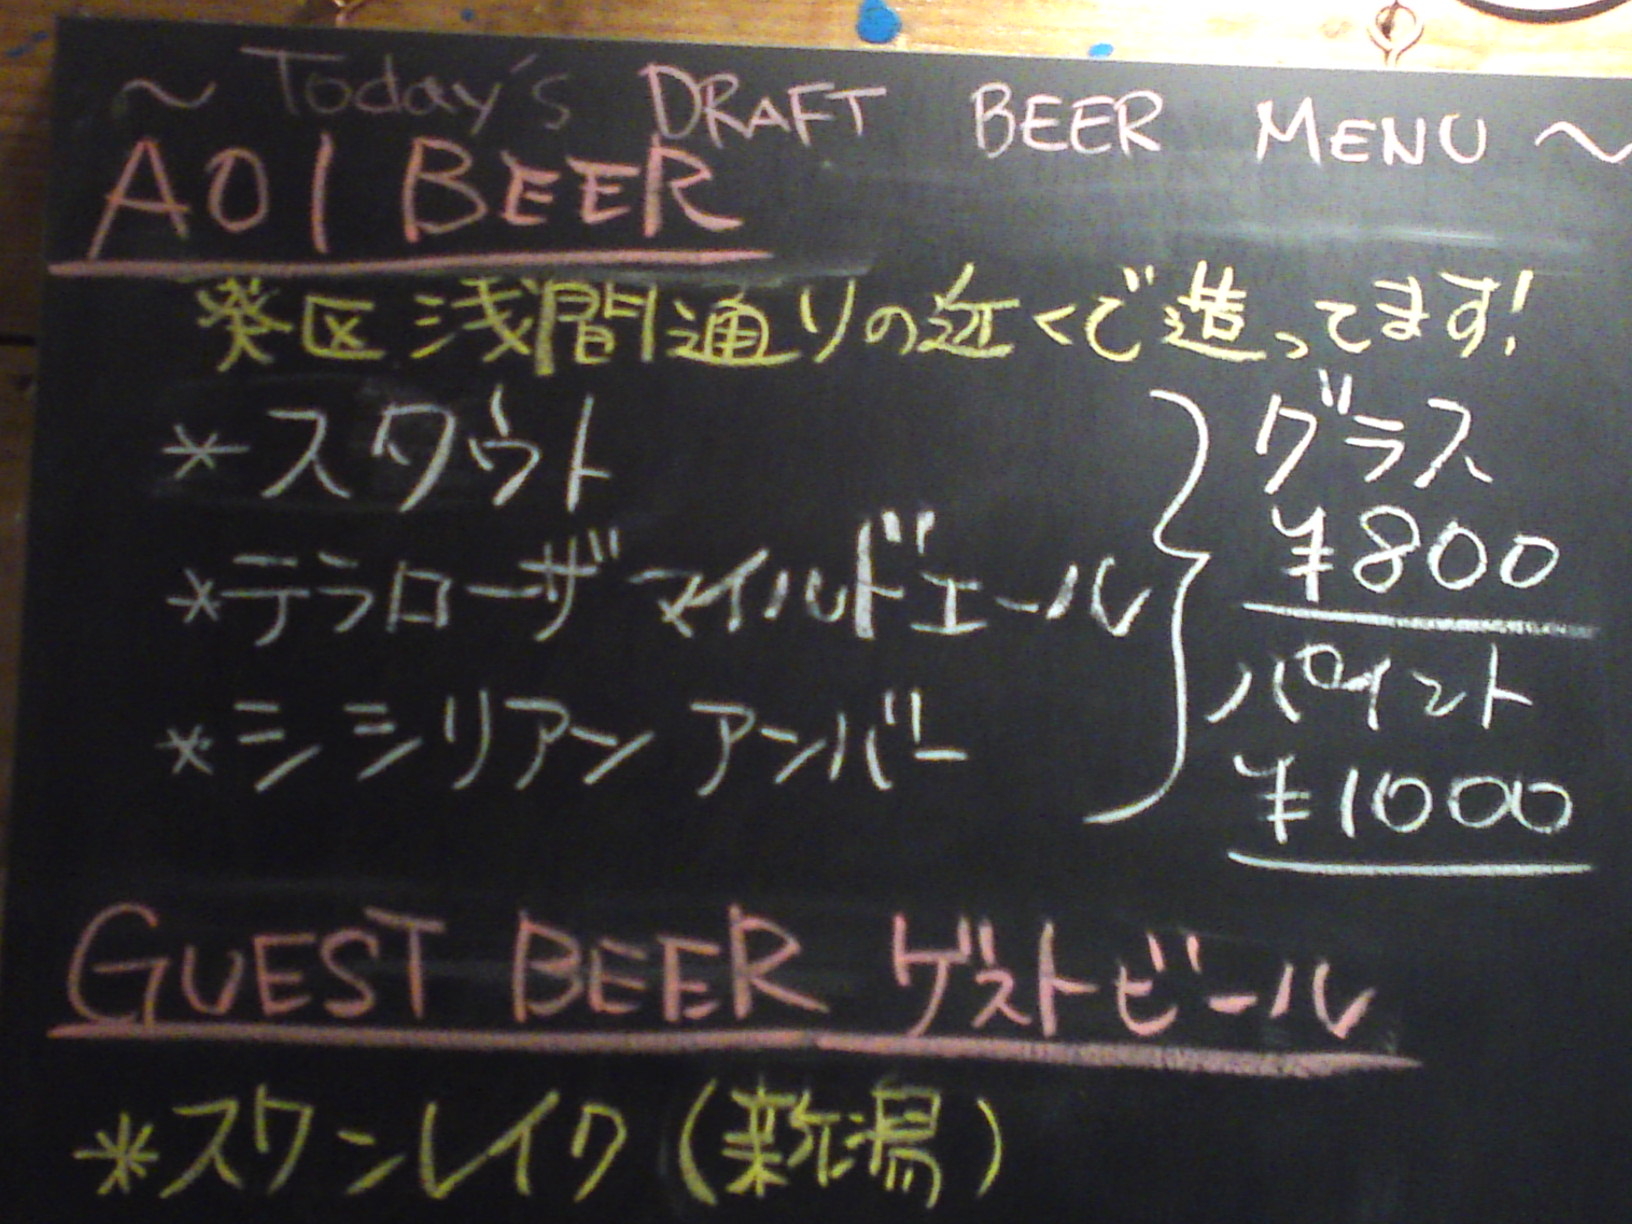 ～Today's DRAFT BEER MENU～
AOI BEER
葵区浅間通りの近くで造ってます!
*スタウト
*テラローザ マイルドエール
*シシリアン アンバー
グラス
¥800
パイント
¥1000
GUEST BEER ゲストビール
*スワンレイク(新潟)